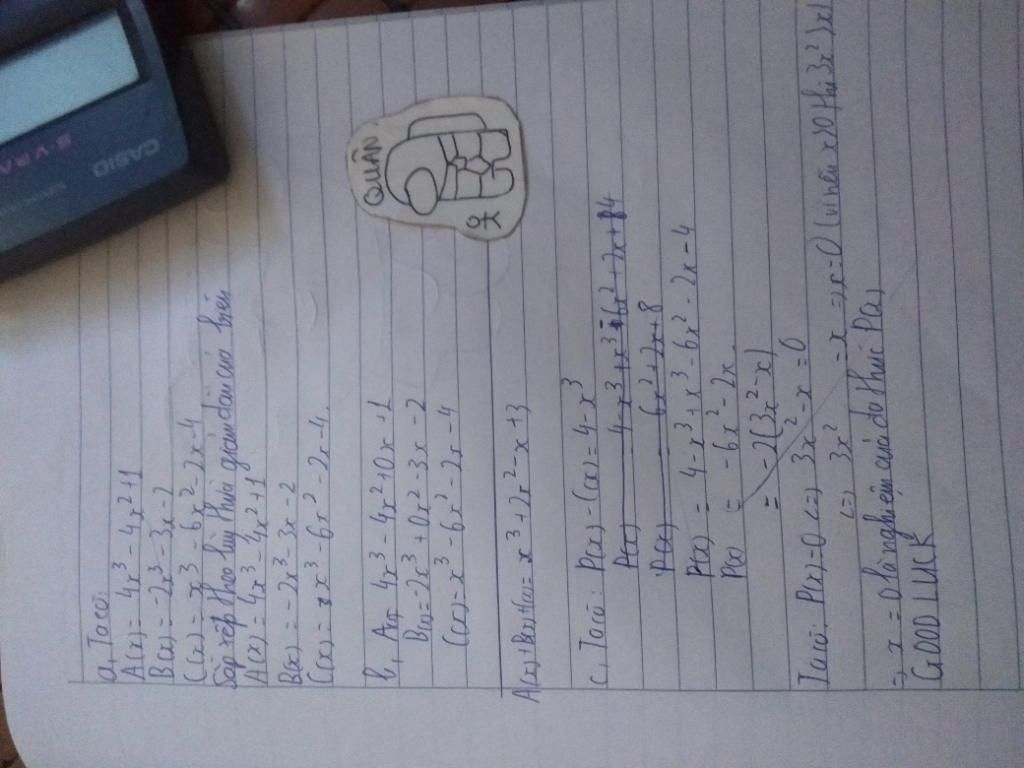 CASIO
S-V.PA
a, Ta có:
A(x) = 4x³ - 4x² + 1
B(x) = -2x³ - 3x - 2
C(x) = x³ - 6x² - 2x - 4
Sắp xếp theo lũy thừa giảm dần của biến
A(x) = 4x³ - 4x² + 1
B(x) = -2x³ - 3x - 2
C(x) = x³ - 6x² - 2x - 4.
QUÂN
b, A(x) = 4x³ - 4x² + 0x + 1
B(x) = -2x³ + 0x² - 3x - 2
C(x) = x³ - 6x² - 2x - 4
A(x) + B(x) + C(x) = x³ + 2x² - x + 3
c, Ta có: P(x) - C(x) = 4 - x³
P(x) 4 - x³ + x³ 6x² + 2x + 84
P(x) 6x² + 2x + 8
P(x) = 4 - x³ + x³ - 6x² - 2x - 4
P(x) = - 6x² - 2x
= -2(3x² - x)
Ta có: P(x) = 0 <=> 3x² - x = 0
<=> 3x² - x => x = 0 (x 3x² > x)
=> x = 0 là nghiệm của đa thức P(x)
GOOD LUCK